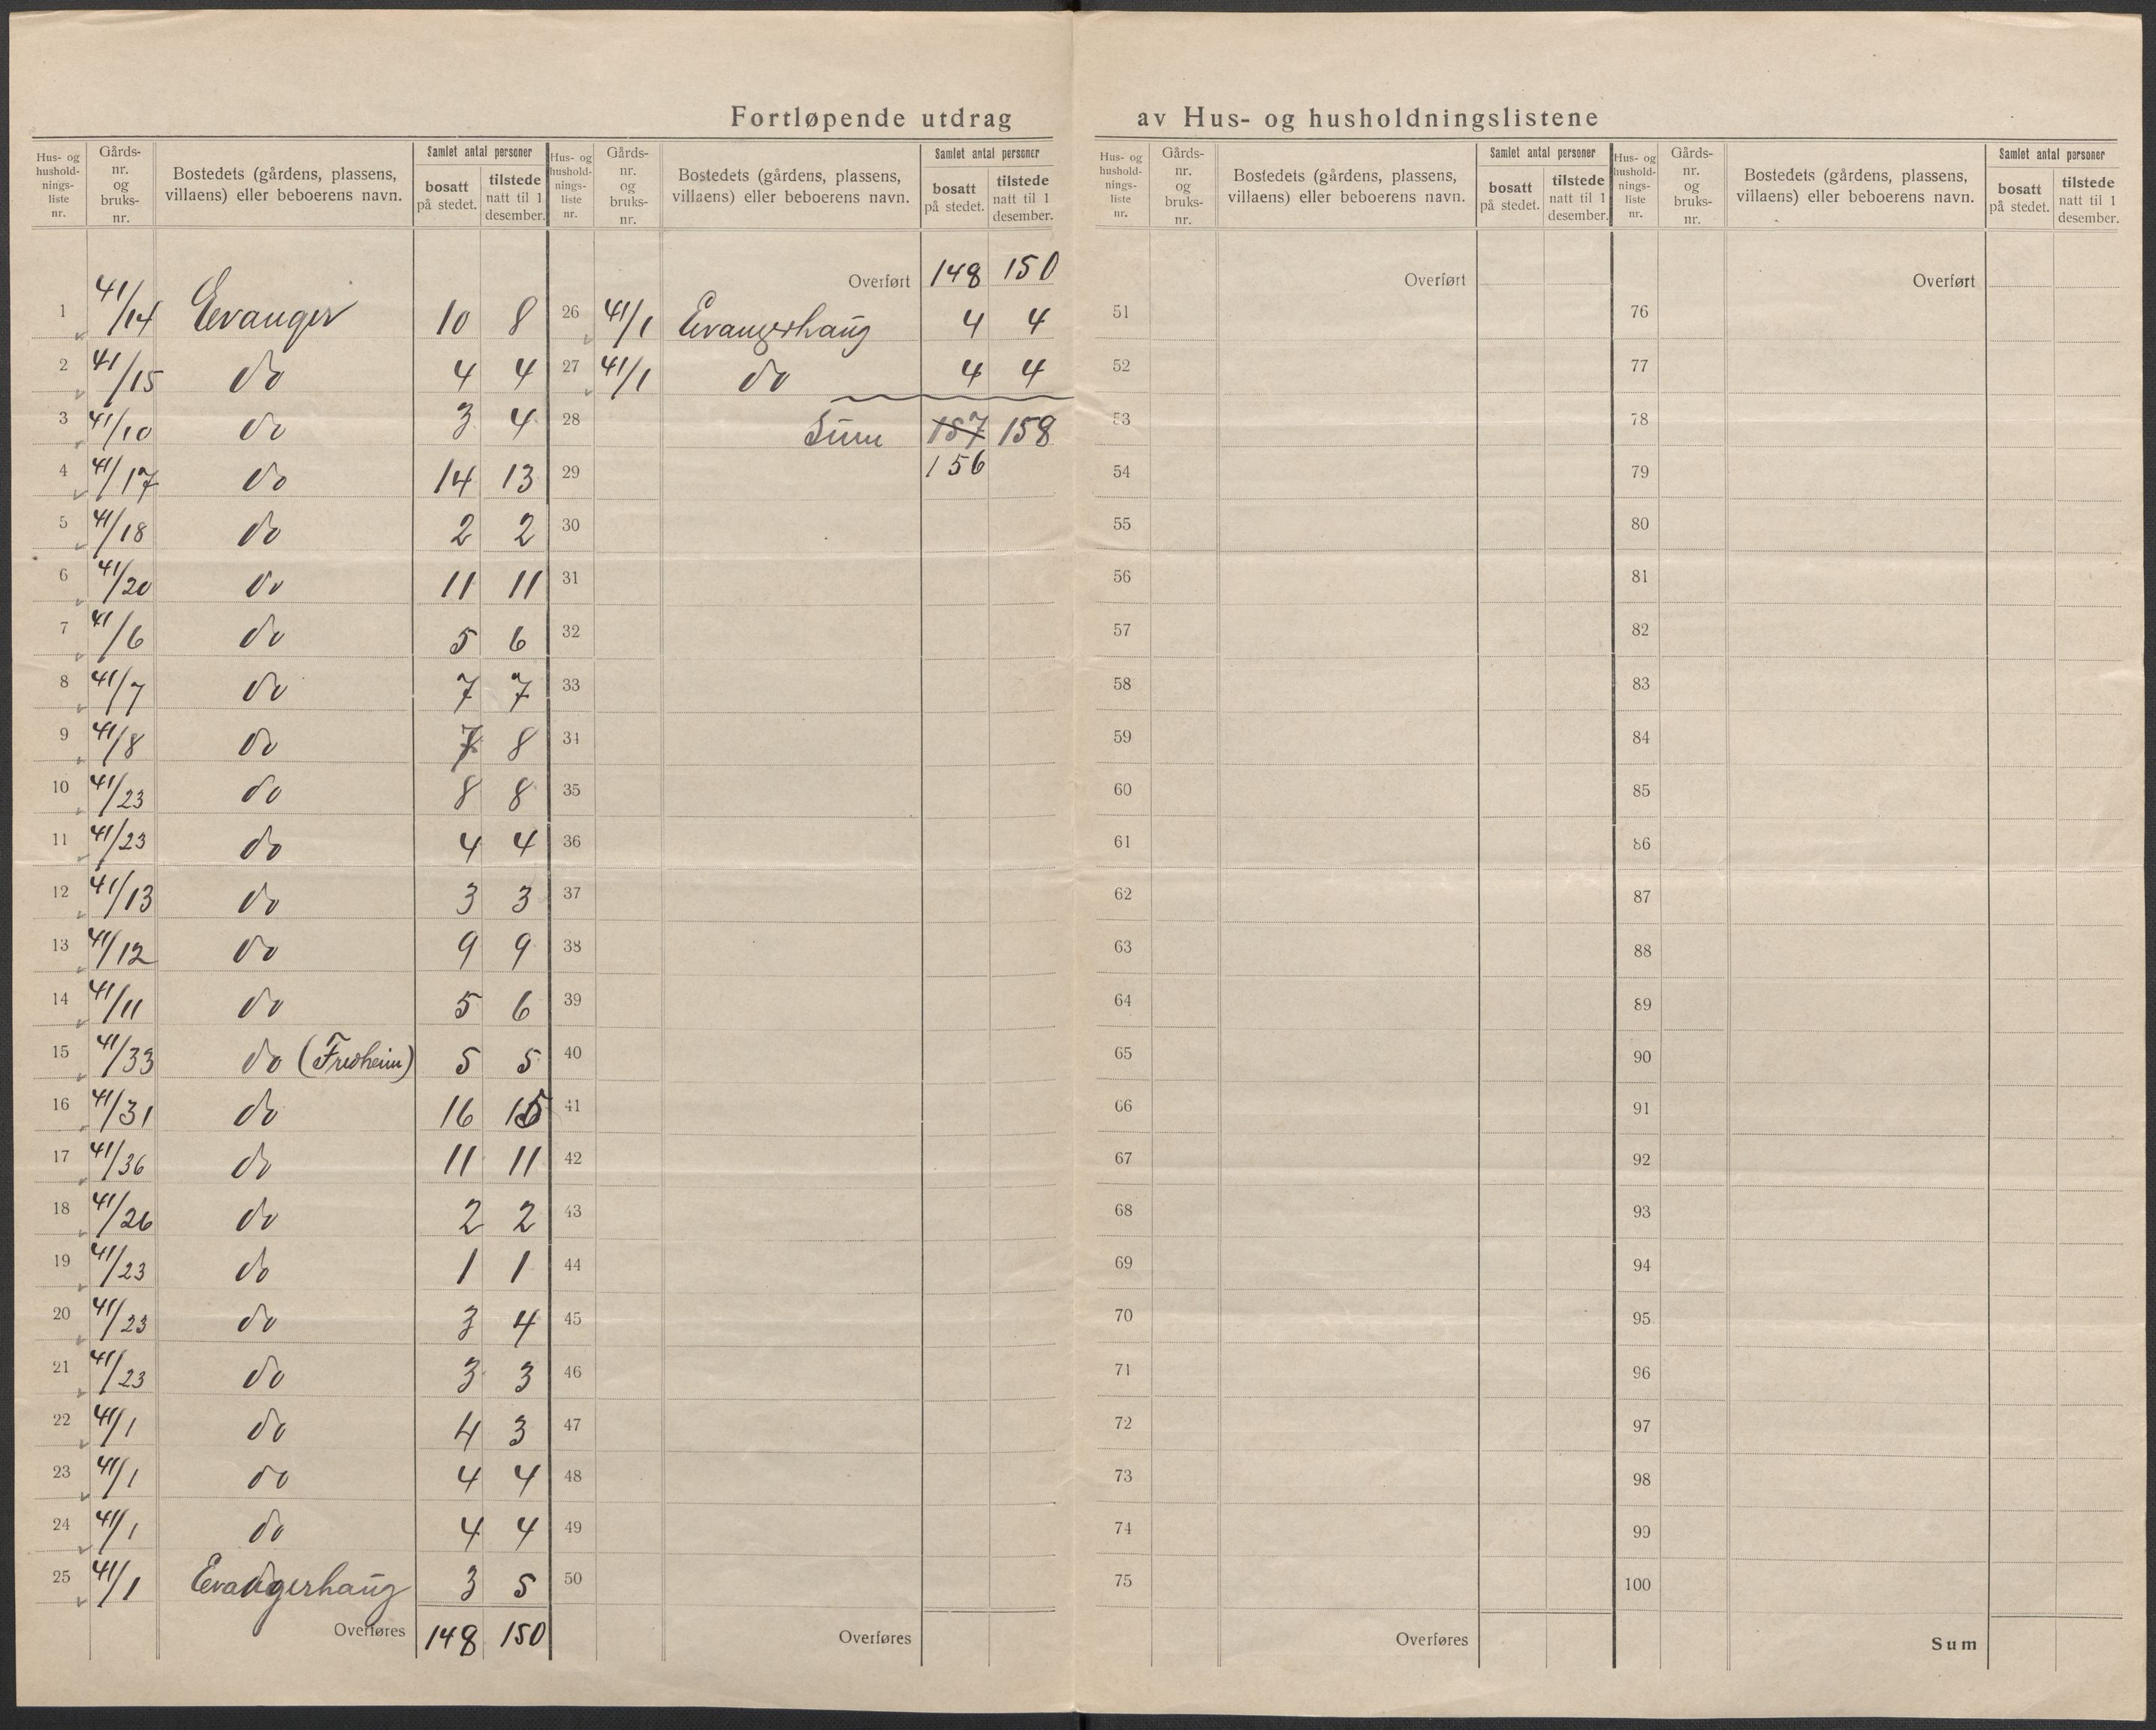 Fortløpende utdrag av Hus- og husholdningslistene
Hus- og hushold- nings- liste nr. | Gårds- nr. og bruks- nr. | Bostedets (gårdens, plassens, villaens) eller beboerens navn. | Samlet antal personer | bosatt på stedet. | tilstede natt til 1 desember.
1 41/14 Evanger 10 8
2 41/15 do 4 4
3 41/10 do 3 4
4 41/17 do 14 13
5 41/18 do 2 2
6 41/20 do 11 11
7 41/6 do 5 6
8 41/7 do 7 7
9 41/8 do 7 8
10 41/23 do 8 8
11 41/23 do 4 4
12 41/13 do 3 3
13 41/12 do 9 9
14 41/11 do 5 6
15 41/33 do (Fredheim) 5 5
16 41/31 do 16 15
17 41/36 do 11 11
18 41/26 do 2 2
19 41/23 do 1 1
20 41/23 do 3 4
21 41/23 do 3 3
22 41/1 do 4 3
23 41/1 do 4 4
24 41/1 do 4 4
25 41/1 Evangerhaug 3 5
Overføres 148 150
Hus- og hushold- nings- liste nr. | Gårds- nr. og bruks- nr. | Bostedets (gårdens, plassens, villaens) eller beboerens navn. | Samlet antal personer | bosatt på stedet. | tilstede natt til 1 desember.
Overført 148 150
26 41/1 Evangerhaug 4 4
27 41/1 do 4 4
28 Sum 157 158
29 156
30
31
32
33
34
35
36
37
38
39
40
41
42
43
44
45
46
47
48
49
50
Overføres
Hus- og hushold- nings- liste nr. | Gårds- nr. og bruks- nr. | Bostedets (gårdens, plassens, villaens) eller beboerens navn. | Samlet antal personer | bosatt på stedet. | tilstede natt til 1 desember.
Overført
51
52
53
54
55
56
57
58
59
60
61
62
63
64
65
66
67
68
69
70
71
72
73
74
75
Overføres
Hus- og hushold- nings- liste nr. | Gårds- nr. og bruks- nr. | Bostedets (gårdens, plassens, villaens) eller beboerens navn. | Samlet antal personer | bosatt på stedet. | tilstede natt til 1 desember.
Overført
76
77
78
79
80
81
82
83
84
85
86
87
88
89
90
91
92
93
94
95
96
97
98
99
100
Sum